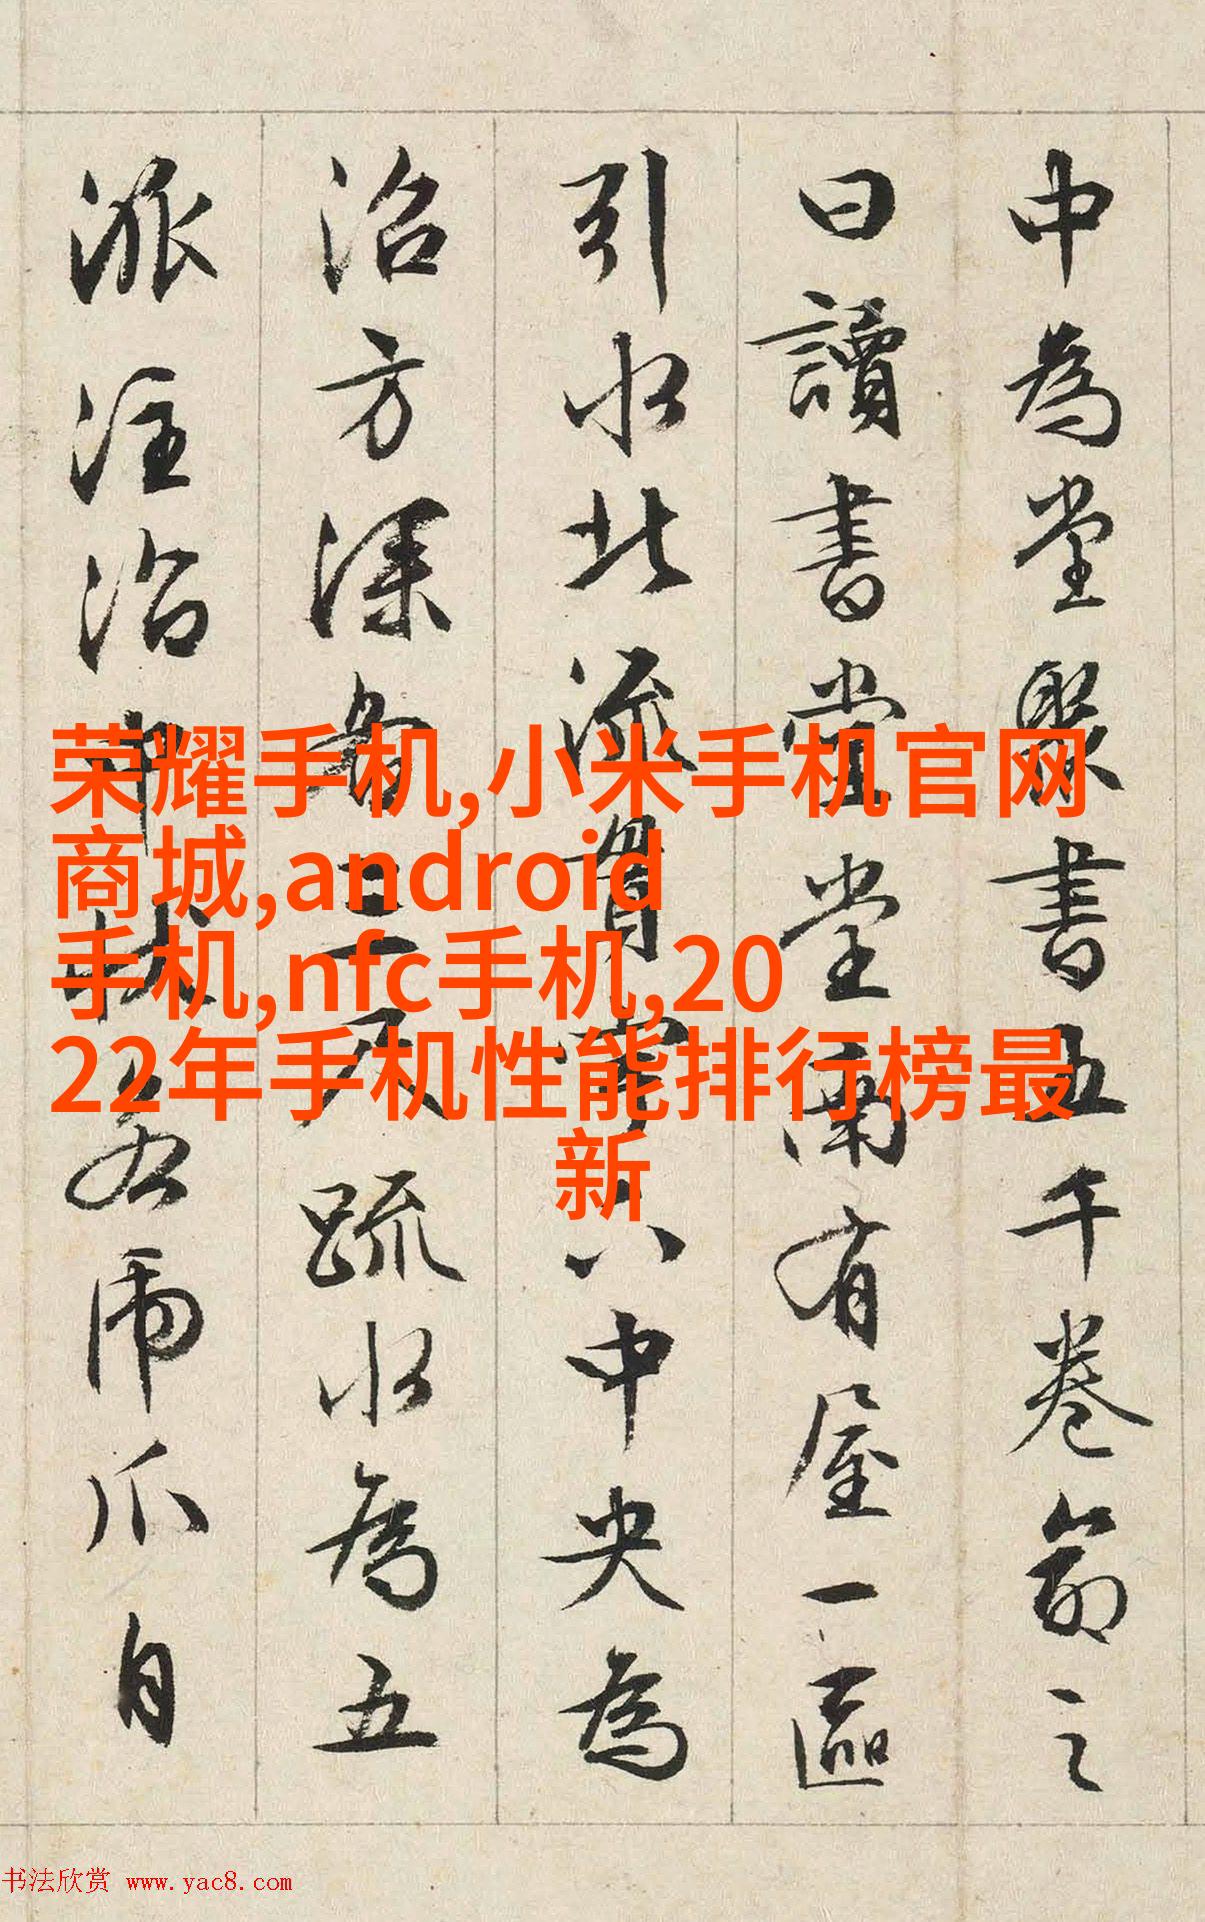 中為堂聚書五千卷命之
曰讀書堂堂南有屋一區
引水北流貫宇下中央為
沼方深各三尺疏水為五
派注沼中狀若虎爪自
荣耀手机,小米手机官网
商城,android
手机,nfc手机,20
22年手机性能排行榜最
新
书法欣赏 www.yac8.com